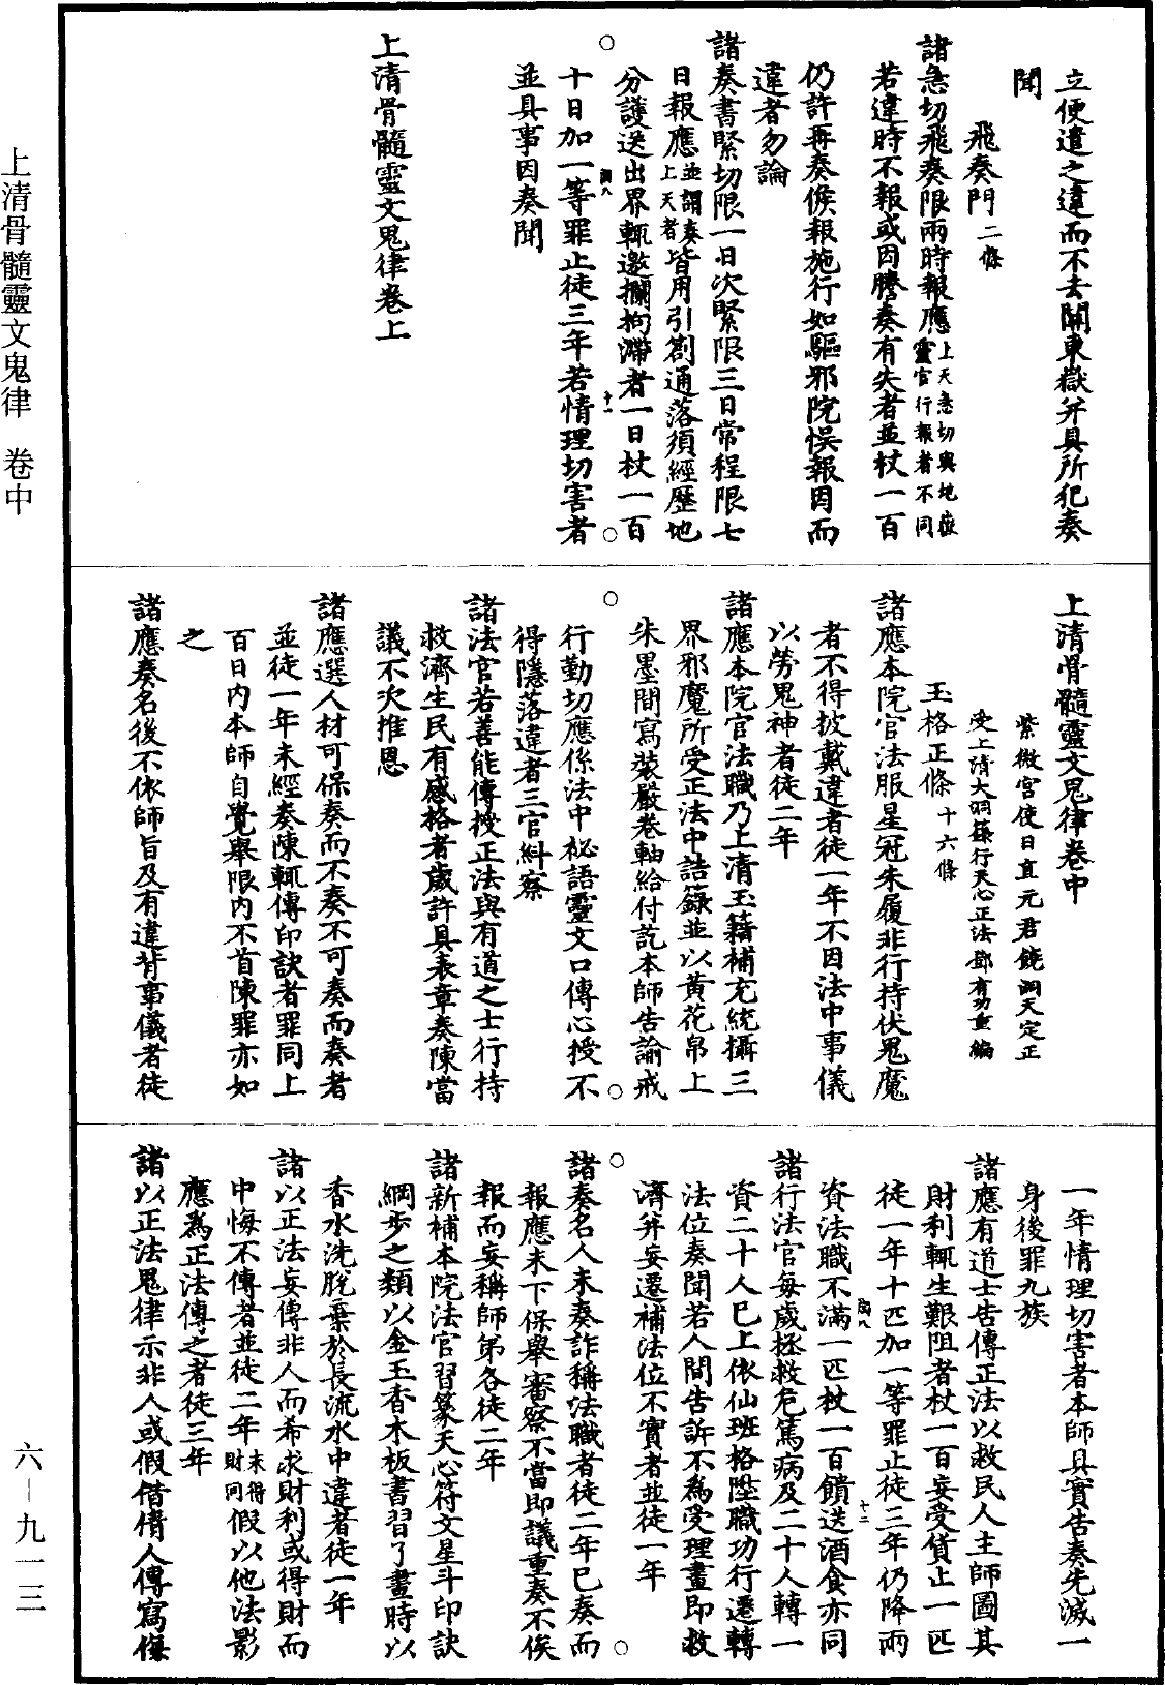 立便遣之違而不去關東嶽并具所犯奏
聞
飛奏門二條
諸急切飛奏限兩時報應上天急切與地嶽靈官行報者不同
若違時不報或因謄奏有失者並杖一百
仍許再奏候報施行如驅邪院悞報因而
違者勿論
諸奏書緊切限一日次緊限三日常程限七
日報應並謂奏上天者皆用引劄通落須經歷地
分護送出界輒邀攔拘滯者一日杖一百
十日加一等罪止徒三年若情理切害者
並具事因奏聞
上清骨髓靈文鬼律卷上
上清骨髓靈文鬼律卷中
紫微宮使日直元君饒洞天定正
受上清大洞籙行天心正法鄧有功重編
玉格正條十六條
諸應本院官法服星冠朱履非行持伏鬼魔
者不得披戴違者徒一年不因法中事儀
以勞鬼神者徒二年
諸應本院官法職乃上清玉籍補充統攝三
界邪魔所受正法中誥籙並以黃花帛上
朱墨間寫裝嚴卷軸給付訖本師告諭戒
行勤切應係法中祕語靈文口傳心授不
得隱落違者三官糾察
諸法官若善能傳授正法與有道之士行持
救濟生民有感格者歲許具表章奏陳當
議不次推恩
諸應選人材可保奏而不奏不可奏而奏者
並徒一年未經奏陳輒傳印訣者罪同上
百日內本師自覺舉限內不首陳罪亦如
之
諸應奏名後不依師旨及有違背事儀者徒
一年情理切害者本師具實告奏先滅一
身後罪九族
諸應有道士告傳正法以救民人主師圖其
財利輒生艱阻者杖一百妄受貨止一匹
徒一年十匹加一等罪止徒三年仍降兩
資法職不滿一匹杖一百饋送酒食亦同
諸行法官每歲拯救危篤病及二十人轉一
資二十人已上依仙班格陞職功行遷轉
法位奏聞若人間告訴不為受理畫即救
濟并妄遷補法位不實者並徒一年
諸奏名人未奏詐稱法職者徒二年已奏而
報應未下保舉審察不當即議重奏不俟
報而妄稱師弟各徒二年
諸新補本院法官習篆天心符文星斗印訣
綱步之類以金玉香木板書習了畫時以
香水洗脫棄於長流水中違者徒一年
諸以正法妄傳非人而希求財利或得財而
中悔不傳者並徒二年未得財同假以他法影
應為正法傳之者徒三年
諸以正法鬼律示非人或假借倩人傳寫傷
上清骨髓靈文鬼律　卷中
六—九一三